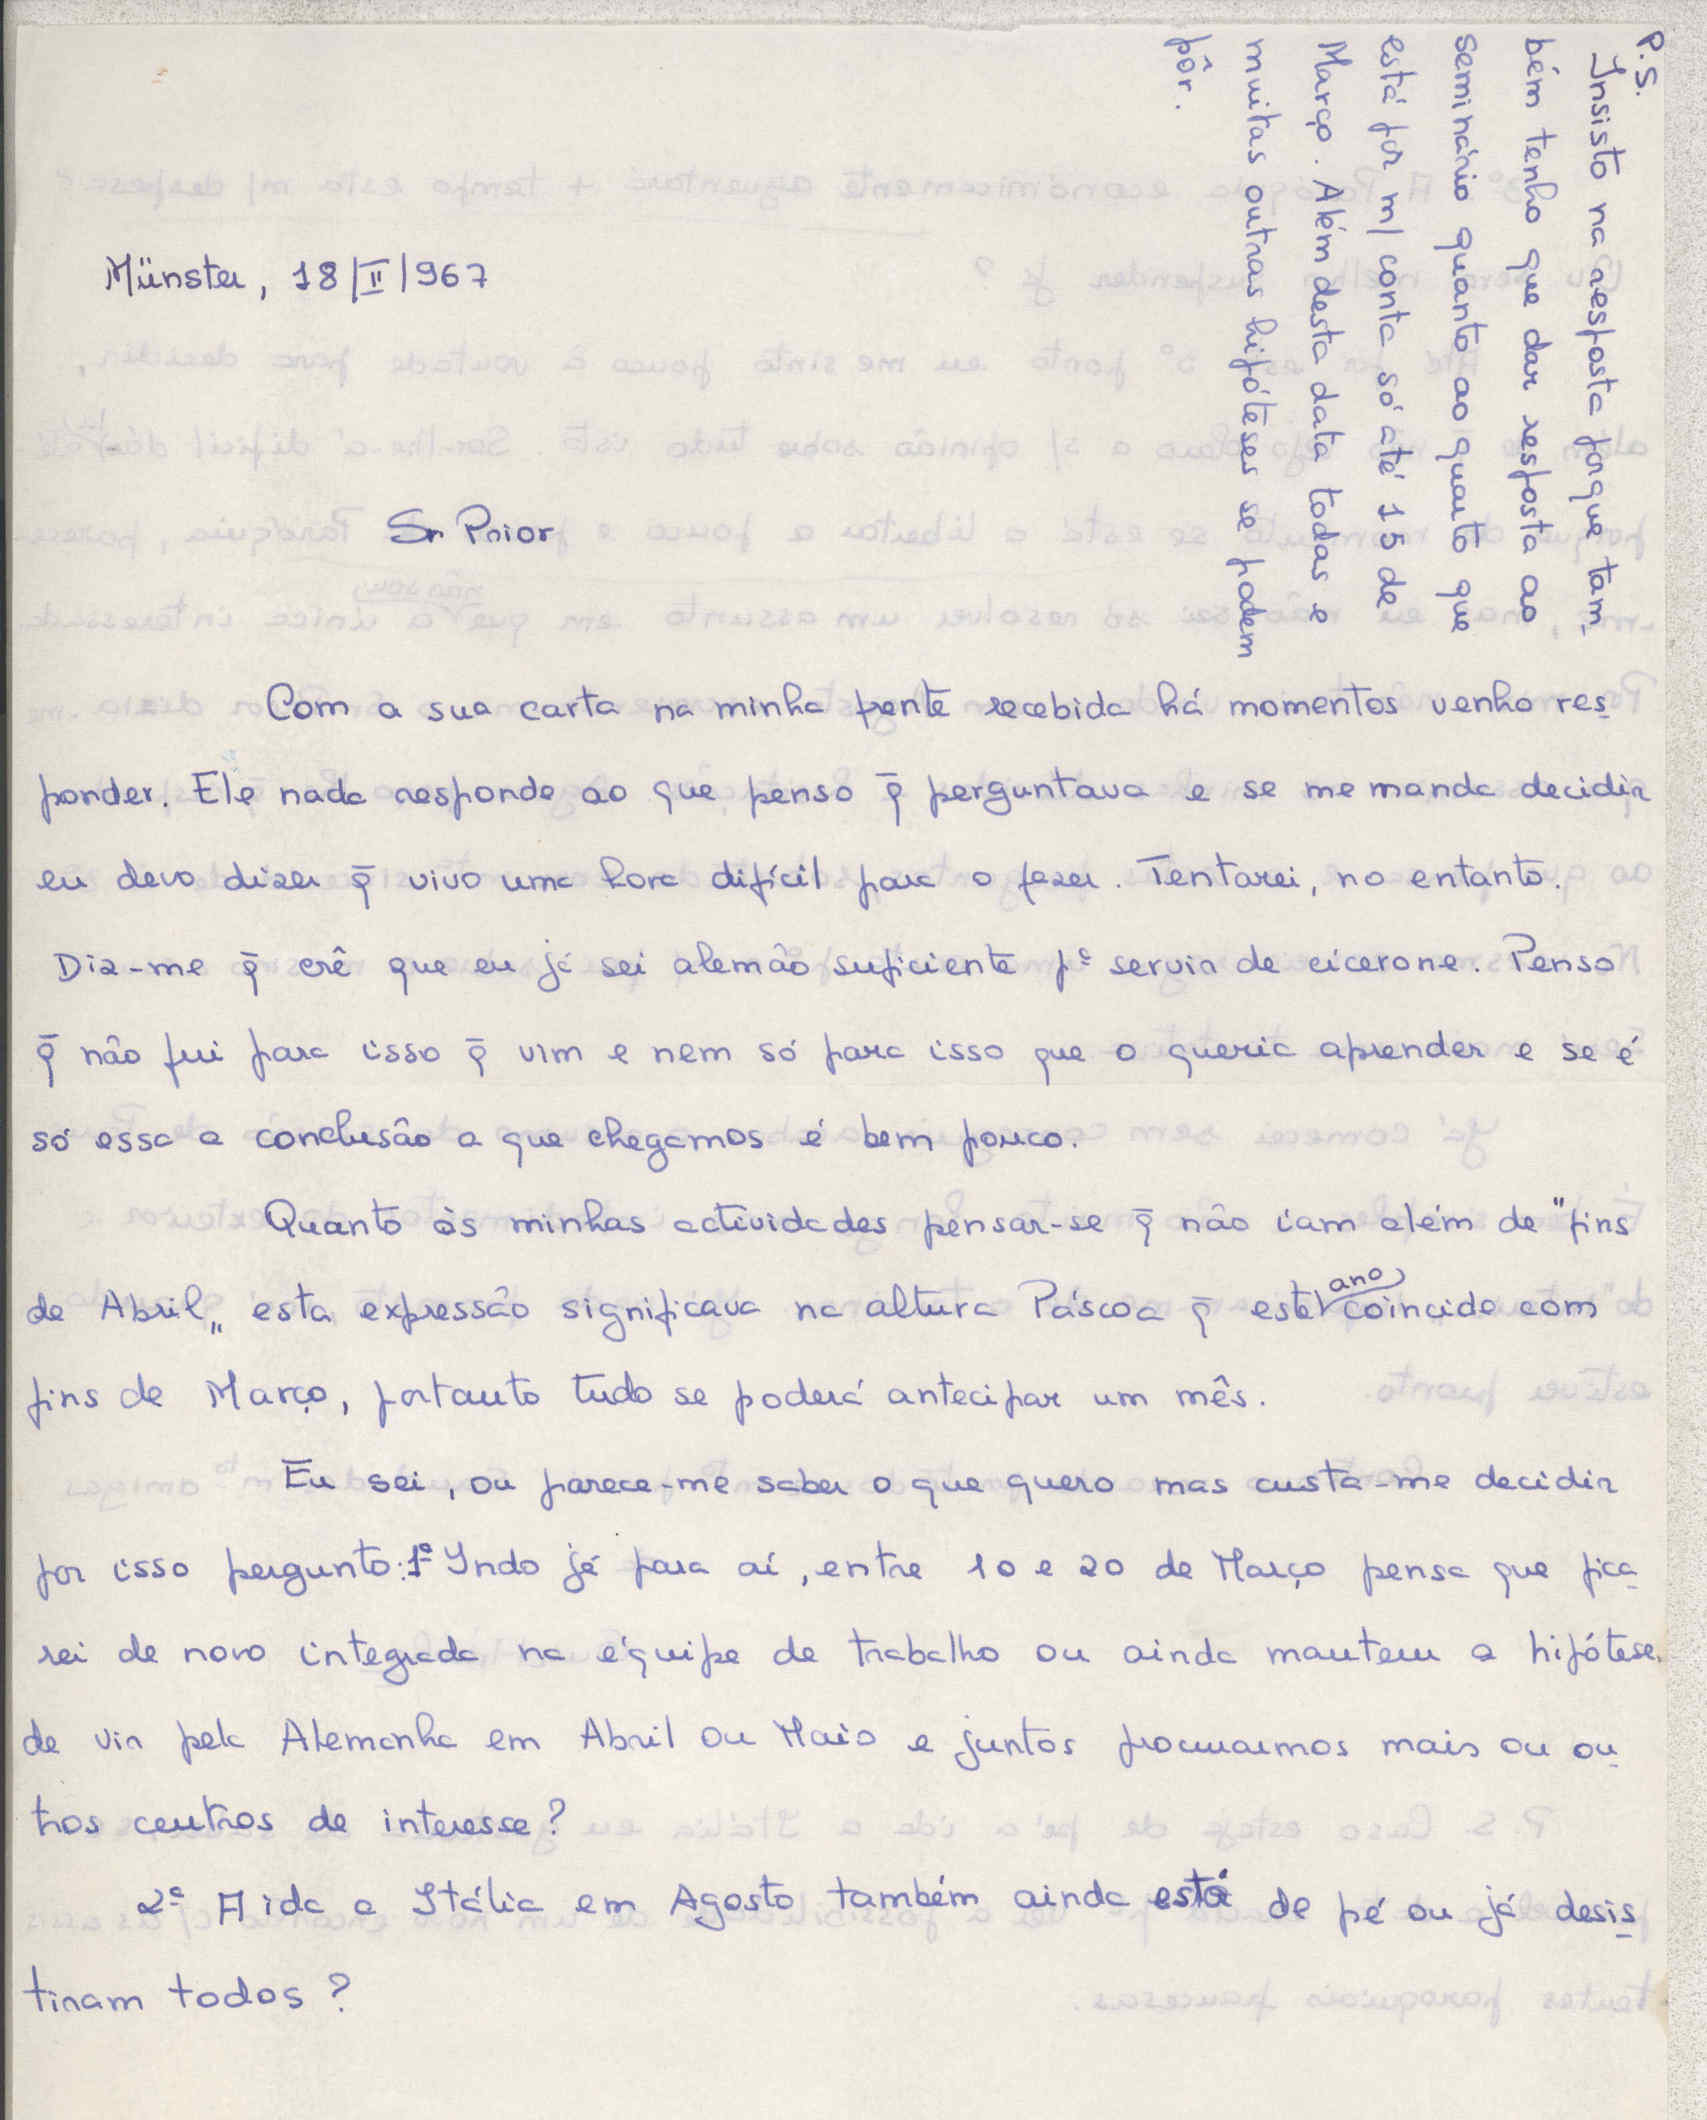 P.S.
Insisto na resposta porque tam-
bém tenho que dar resposta ao
seminário quanto ao quarto que
está por m/ conta só até 15 de
Março. Além desta data todas e
muitas outras hipóteses se podem
pôr.
Münster, 18/II/967
Sr Prior
Com a sua carta na minha frente recebida há momentos venho res-
ponder. Ele nada responde ao que penso q̄ perguntava e se me manda decidir
eu devo dizer q̄ vivo uma hora difícil para o fazer. Tentarei, no entanto.
Diz-me q̄ crê que eu já sei alemão suficiente pª servir de cicerone. Penso
q̄ não fui para isso q̄ vim e nem só para isso que o queria aprender e se é
só essa a conclusão a que chegamos é bem pouco.
Quanto às minhas actividades pensar-se q̄ não iam além de "fins
de Abril„ esta expressão significava na altura Páscoa q̄ este ano coincide com
fins de Março, portanto tudo se poderá antecipar um mês.
Eu sei, ou parece-me saber o que quero mas custa-me decidir
por isso pergunto: 1º Indo já para aí, entre 10 e 20 de Março pensa que fica-
rei de novo integrada na équipe de trabalho ou ainda mantem a hipótese
de vir pela Alemanha em Abril ou Maio e juntos procurarmos mais ou ou-
tros centros de interesse?
2º A ida a Itália em Agosto também ainda está de pé ou já desis-
tiram todos?